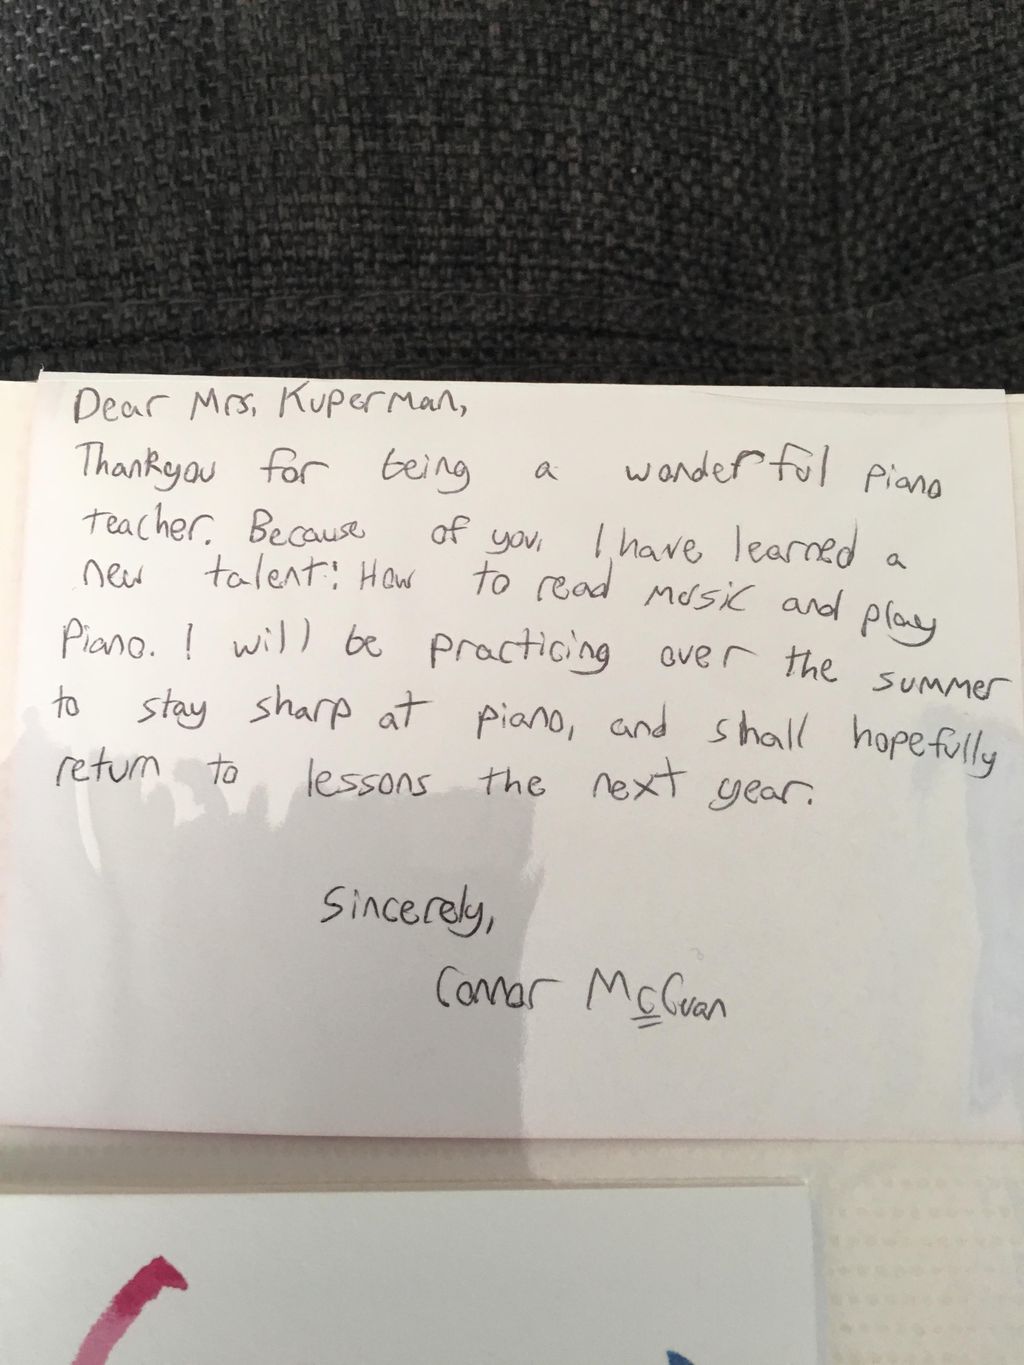 Dear Mrs. Kuperman,
Thankyou for being a wonderful piano
teacher. Because of you, I have learned a
new talent: How to read music and play
Piano. I will be practicing over the summer
to stay sharp at piano, and shall hopefully
return to lessons the next year.
Sincerely,
Connor McGuan